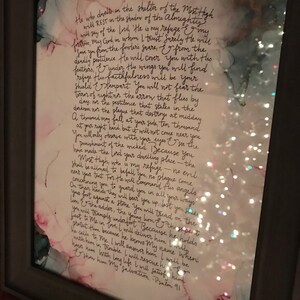 He who dwells in the shelter of the Most High
will REST in the shadow of the Almighty. I
will say of the Lord He is my Refuge & my
fortress, my God in whom I trust. Surely He will
save you from the fowlers snare & from the
deadly pestilence. He will cover you with His
feathers, & under His wings you will find
refuge. His faithfulness will be your
shield & rampart. You will not fear the
terror of night, nor the arrow that flies by
day, nor the pestilence that stalks in the
darkness, nor the plague that destroys at midday.
A thousand may fall at your side, ten thousand
at your right hand but it will not come near you.
You will only observe with your eyes & see the
punishment of the wicked. Because you
have made the Lord your dwelling place - the
Most High who is my refuge - no evil
shall be allowed to befall you, no plague come
near your tent. For He will command His angels
concerning you to guard you in all your ways.
On their hands they will bear you up, lest you strike
your foot against a stone. You will tread on the
lion & the adder, the young lion & the serpent
you will trample underfoot. Because he holds
fast to Me in love, I will deliver him; I will
protect him because he knows My name. When
he calls to Me, I will answer him; I will be
with him in trouble; I will rescue him &
him. With long life I will satisfy him
show him My Salvation. Psalm 91